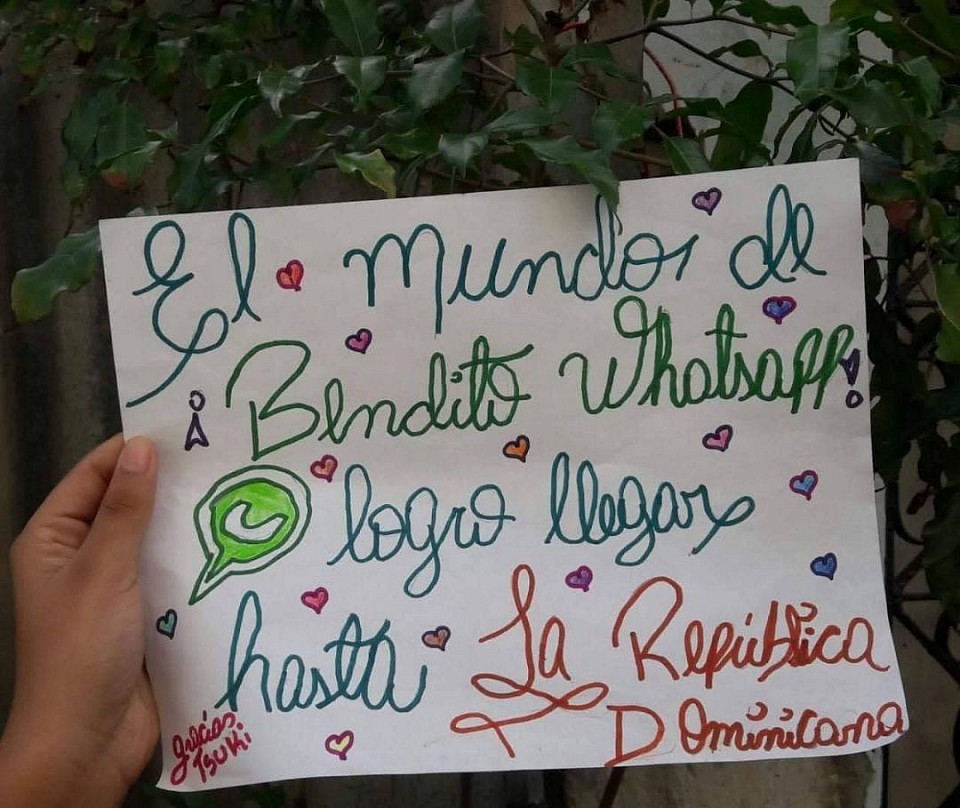 El Mundo de
¡Bendito Whatsapp!
logro llegar
hasta La República
Dominicana
gracias.
Tsuki